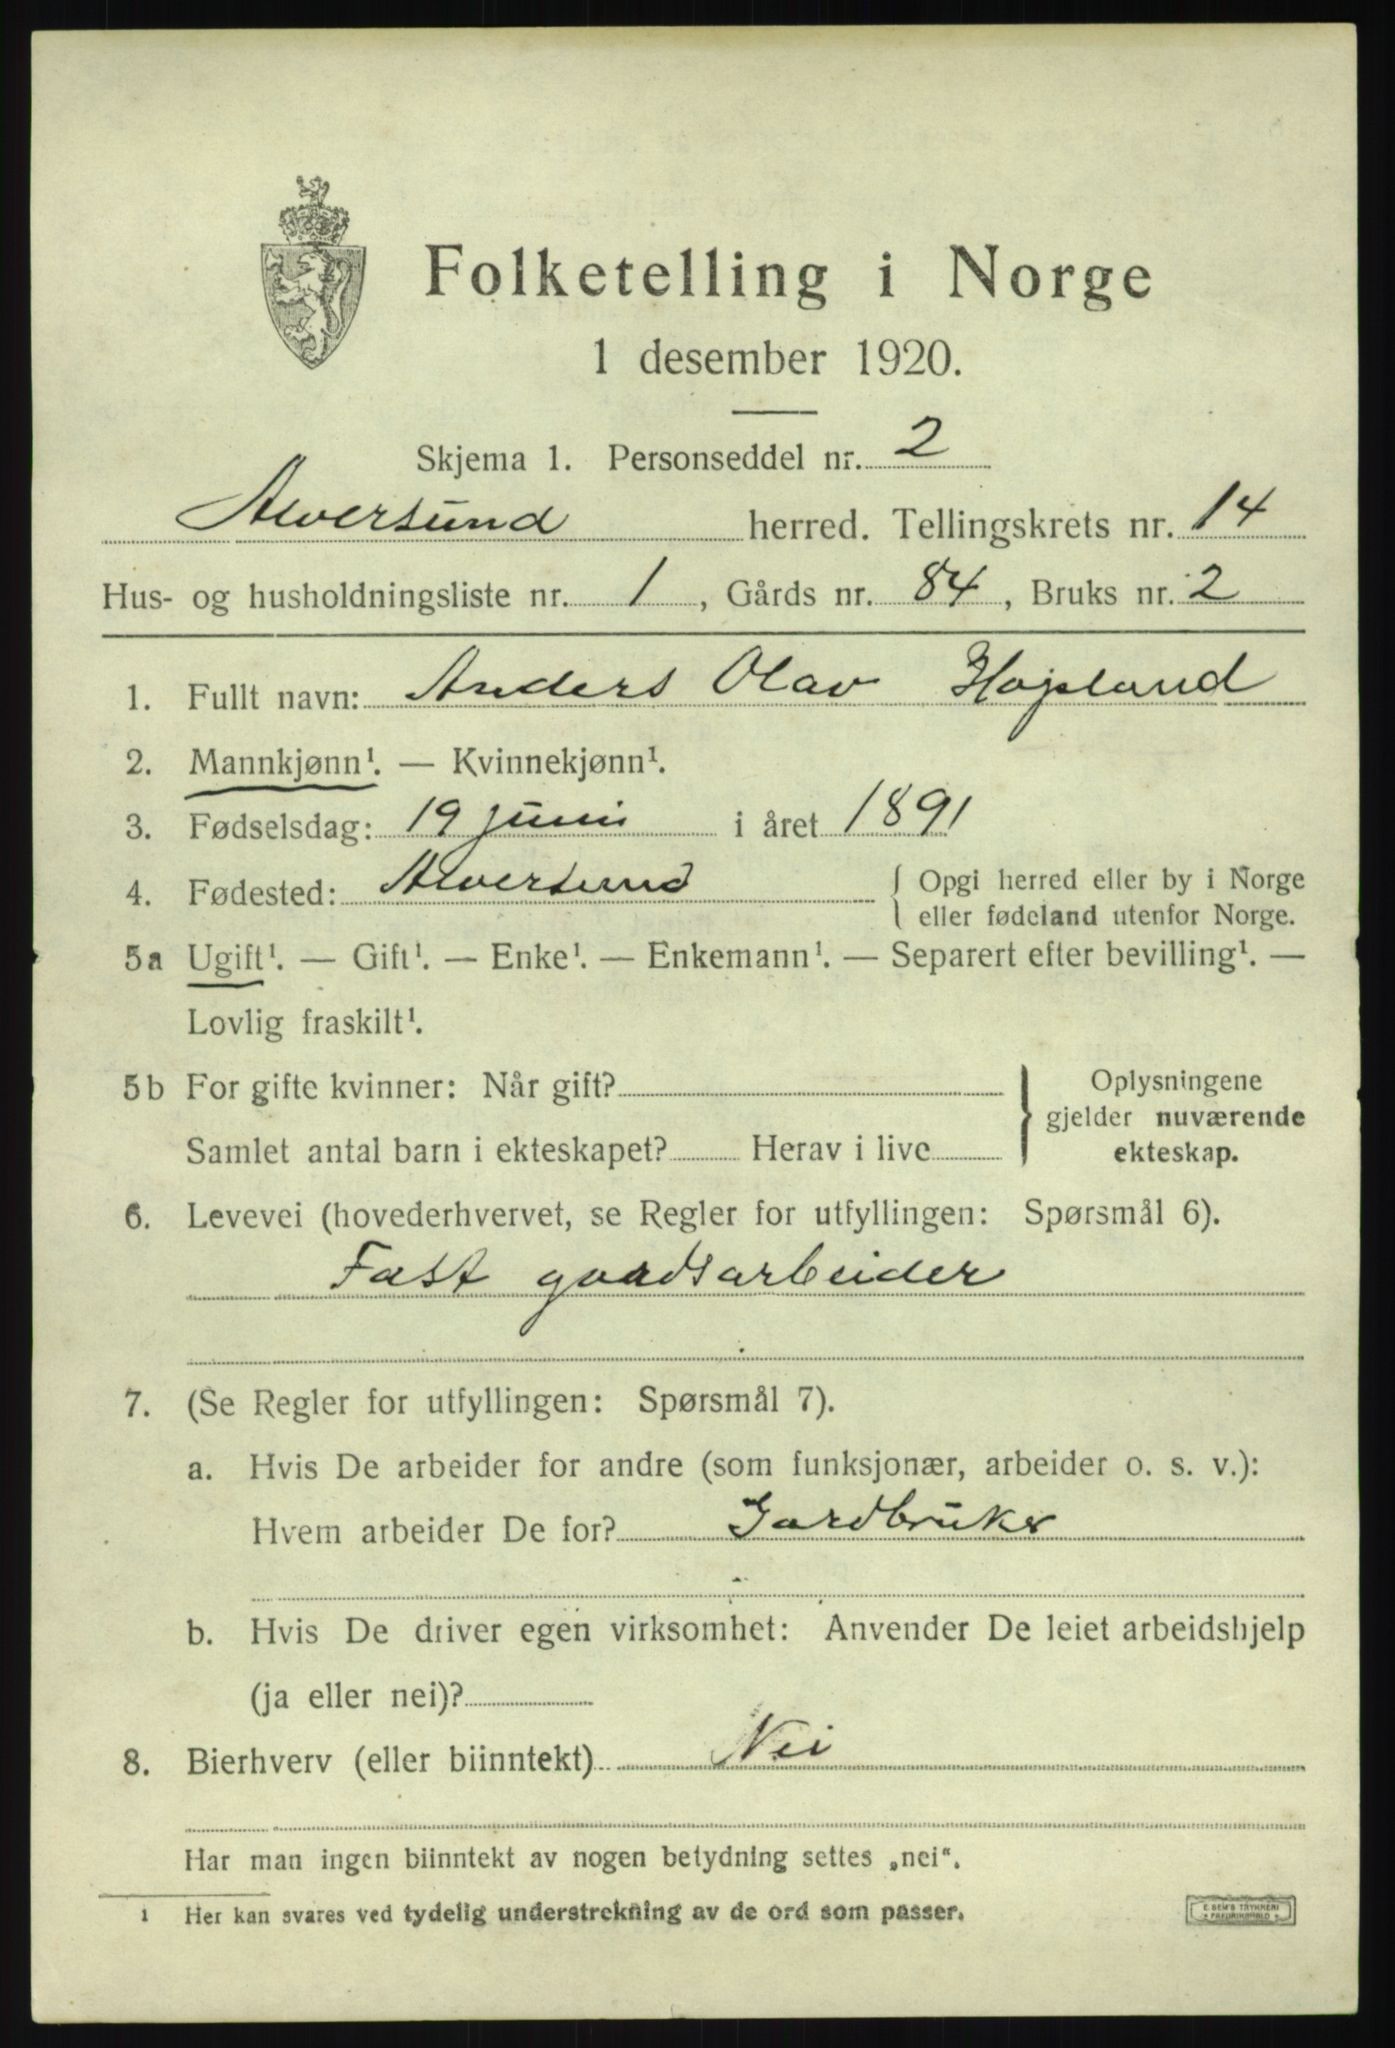 Folketelling i Norge
1 desember 1920.
Skjema 1. Personseddel nr. 2
Alversund herred. Tellingskrets nr. 14
Hus- og husholdningsliste nr. 1, Gårds nr. 84, Bruks nr. 2
1. Fullt navn: Anders Olav Hopland
2. Mannkjønn¹. — Kvinnekjønn¹.
3. Fødselsdag: 19 juni i året 1891
4. Fødested: Alversund { Opgi herred eller by i Norge
eller fødeland utenfor Norge.
5a Ugift¹. — Gift¹. — Enke¹. — Enkemann¹. — Separert efter bevilling¹. —
Lovlig fraskilt¹.
5b For gifte kvinner: Når gift?
Samlet antal barn i ekteskapet? Herav i live
} Oplysningene
gjelder nuværende
ekteskap.
6. Levevei (hovederhvervet, se Regler for utfyllingen: Spørsmål 6).
Fast gaardsarbeider
7. (Se Regler for utfyllingen: Spørsmål 7).
a. Hvis De arbeider for andre (som funksjonær, arbeider o. s. v.):
Hvem arbeider De for? Gardbruker
b. Hvis De driver egen virksomhet: Anvender De leiet arbeidshjelp
(ja eller nei)?
8. Bierhverv (eller biinntekt) Nei
Har man ingen biinntekt av nogen betydning settes „nei".
1 Her kan svares ved tydelig understrekning av de ord som passer.
E. SEM'S TRYKKERI
FREDRIKSHALD